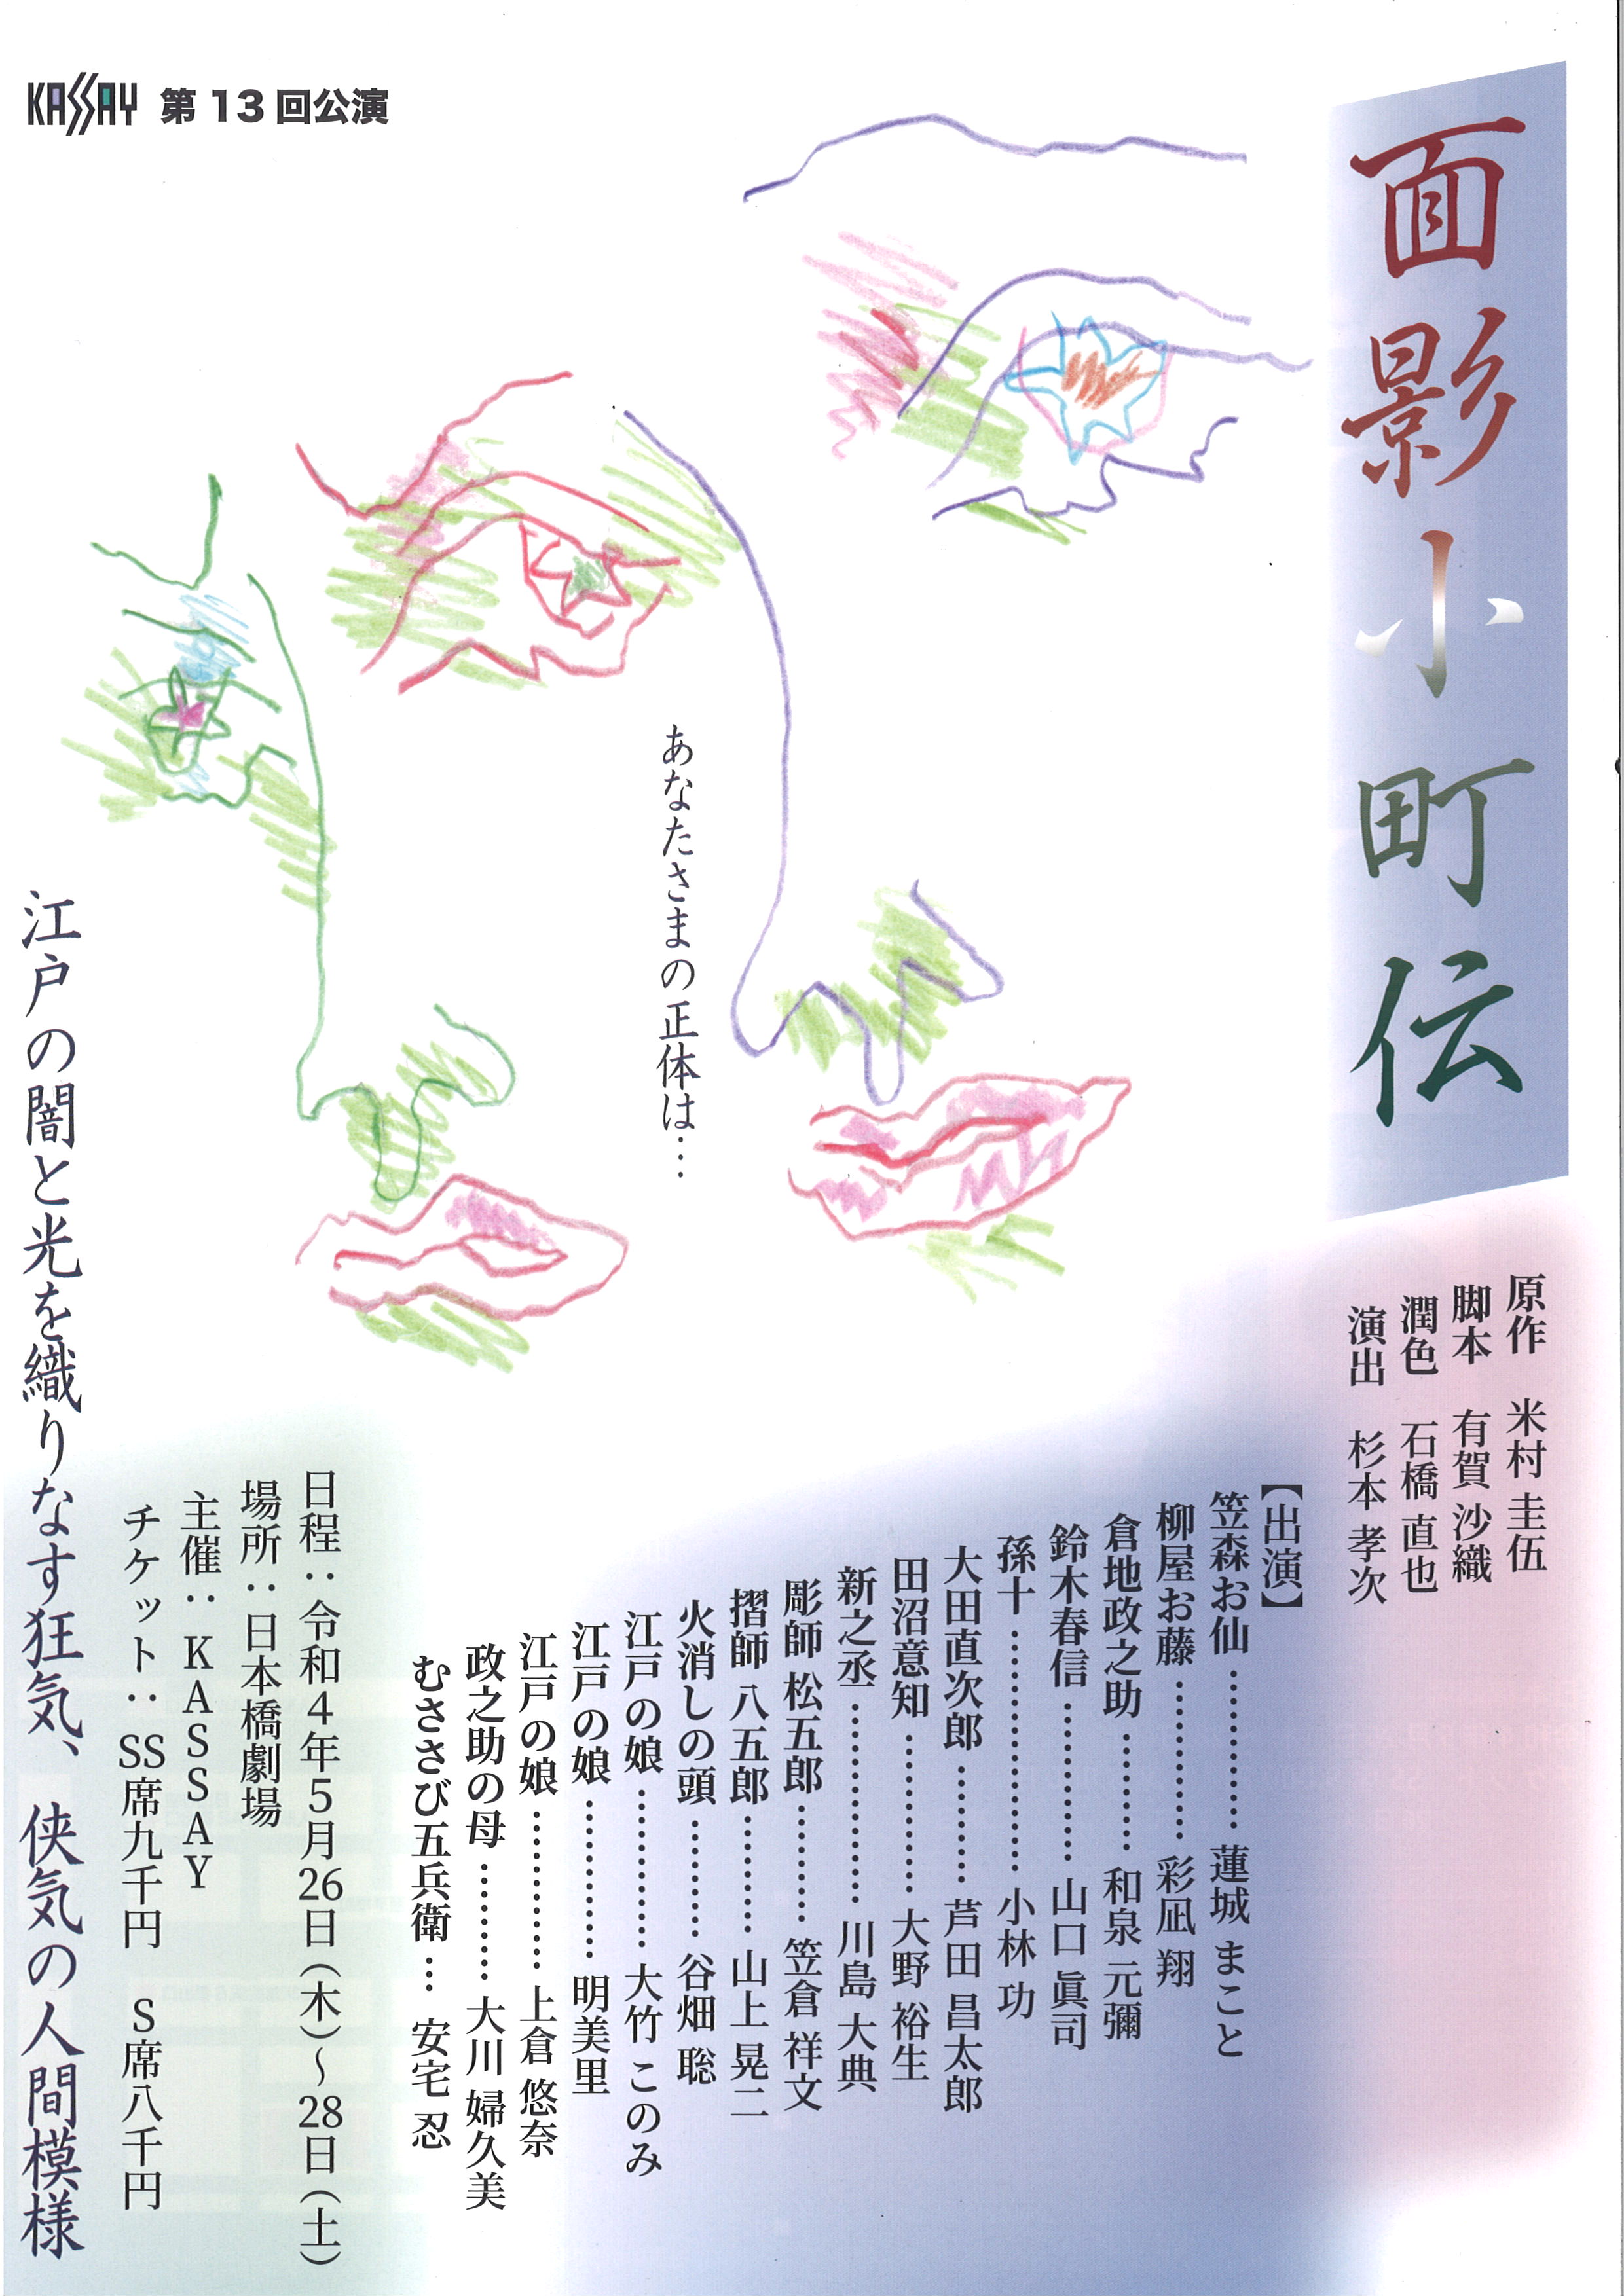 KASSAY 第13回公演
面影小町伝
原作 米村 圭伍
脚本 有賀 沙織
潤色 石橋 直也
演出 杉本 孝次
あなたさまの正体は…
【出演】
笠森お仙………… 蓮城 まこと
柳屋お藤………… 彩凪 翔
倉地政之助……… 和泉 元彌
鈴木春信………… 山口 眞司
孫十……………… 小林 功
大田直次郎……… 芦田 昌太郎
田沼意知………… 大野 裕生
新之丞…………… 川島 大典
彫師 松五郎……… 笠倉 祥文
摺師 八五郎……… 山上 晃二
火消しの頭……… 谷畑 聡
江戸の娘………… 大竹 このみ
江戸の娘………… 明美里
江戸の娘………… 上倉 悠奈
政之助の母……… 大川 婦久美
むささび五兵衛… 安宅 忍
日程：令和４年５月26日（木）～28日（土）
場所：日本橋劇場
主催：ＫＡＳＳＡＹ
チケット：SS席九千円 S席八千円
江戸の闇と光を織りなす狂気、侠気の人間模様